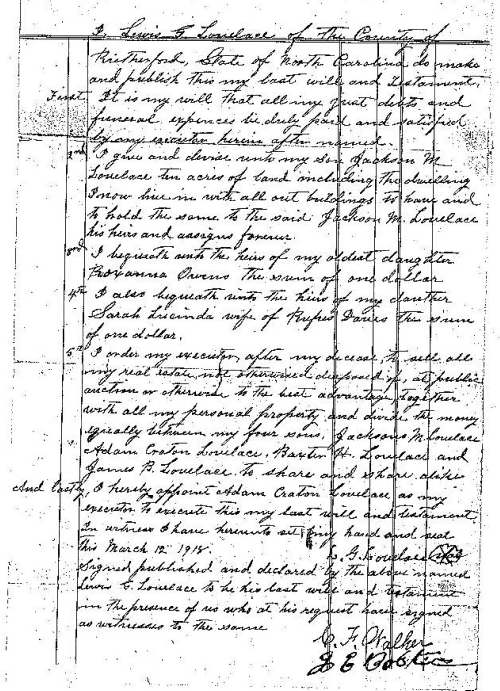 I, Lewis G. Lovelace of the County of
Rutherford, State of North Carolina do make
and publish this my last will and Testament,
First It is my will that all my just debts and
funeral expences be duly paid and satisfied
by my executor herein after named.
2nd I give and devise unto my son Jackson M
Lovelace ten acres of land including the dwelling
I now live in with all out buildings to have and
to hold the same to the said Jackson M. Lovelace
his heirs and assigns forever.
3rd I bequeath unto the heirs of my oldest daughter
Roxanna Owens the sum of one dollar
4th I also bequeath unto the heirs of my daughter
Sarah Lucinda wife of Rufus Davies the sum
of one dollar.
5th I order my executor, after my decease, to sell all
my real estate, not otherwise disposed of, at public
auction or otherwise to the best advantage, together
with all my personal property and divide the money
equally between my four sons, Jackson M. Lovelace
Adam Craton Lovelace, Baxter H. Lovelace and
James B. Lovelace to share and share alike
And lastly, I hereby appoint Adam Craton Lovelace as my
executor to execute this my last will and testament,
In witness I have hereunto set my hand and seal
this March 12" 1918.
L. G. Lovelace
Signed, published and declared by the above named
Lewis G. Lovelace to be his last will and testament
in the presence of us who at his request have signed
as witnesses to the same
C. F. Walker
J E